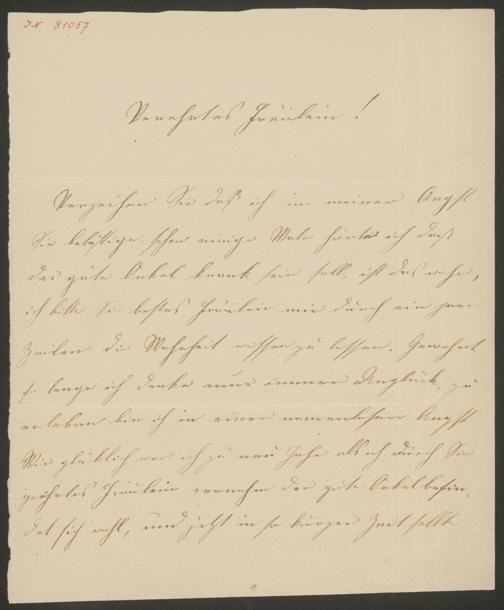 I.N 81057
Verehrtes Fräulein!
Verzeihen Sie daß ich in meiner Angst
Sie beläßtige, schon einige Male hörte ich daß
der gute Onkel krank sein soll, ist das wahr,
ich bitte Sie bestes Fräulein mir durch ein paar
Zeilen die Wahrheit wissen zu lassen. Gewohnt
so lange ich denke nur immer Unglück zu
erleben bin ich in einer namenlosen Angst
Wie glücklich war ich zu neu Jahr als ich durch Sie
geehrtes Fräulein vernahm der gute Onkel befin-
det sich wohl, und jetzt in so kurzer Zeit sollte